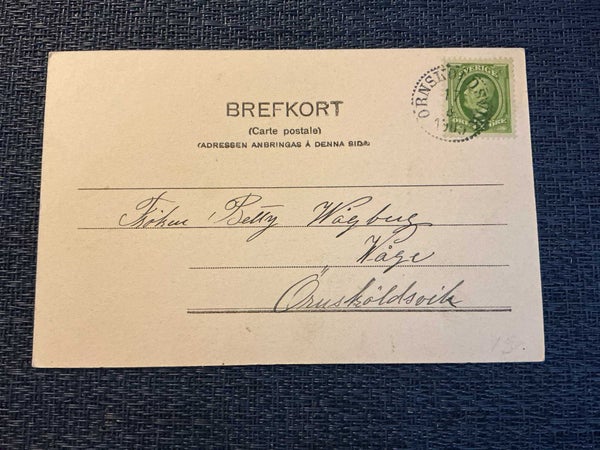 BREFKORT
(Carte postale)
(ADRESSEN ANBRINGAS Å DENNA SIDA)
SVERIGE
ÖRNSKÖLDSVIK
ÖRE
Fröken Betty Wågberg
Våge
Örnsköldsvik